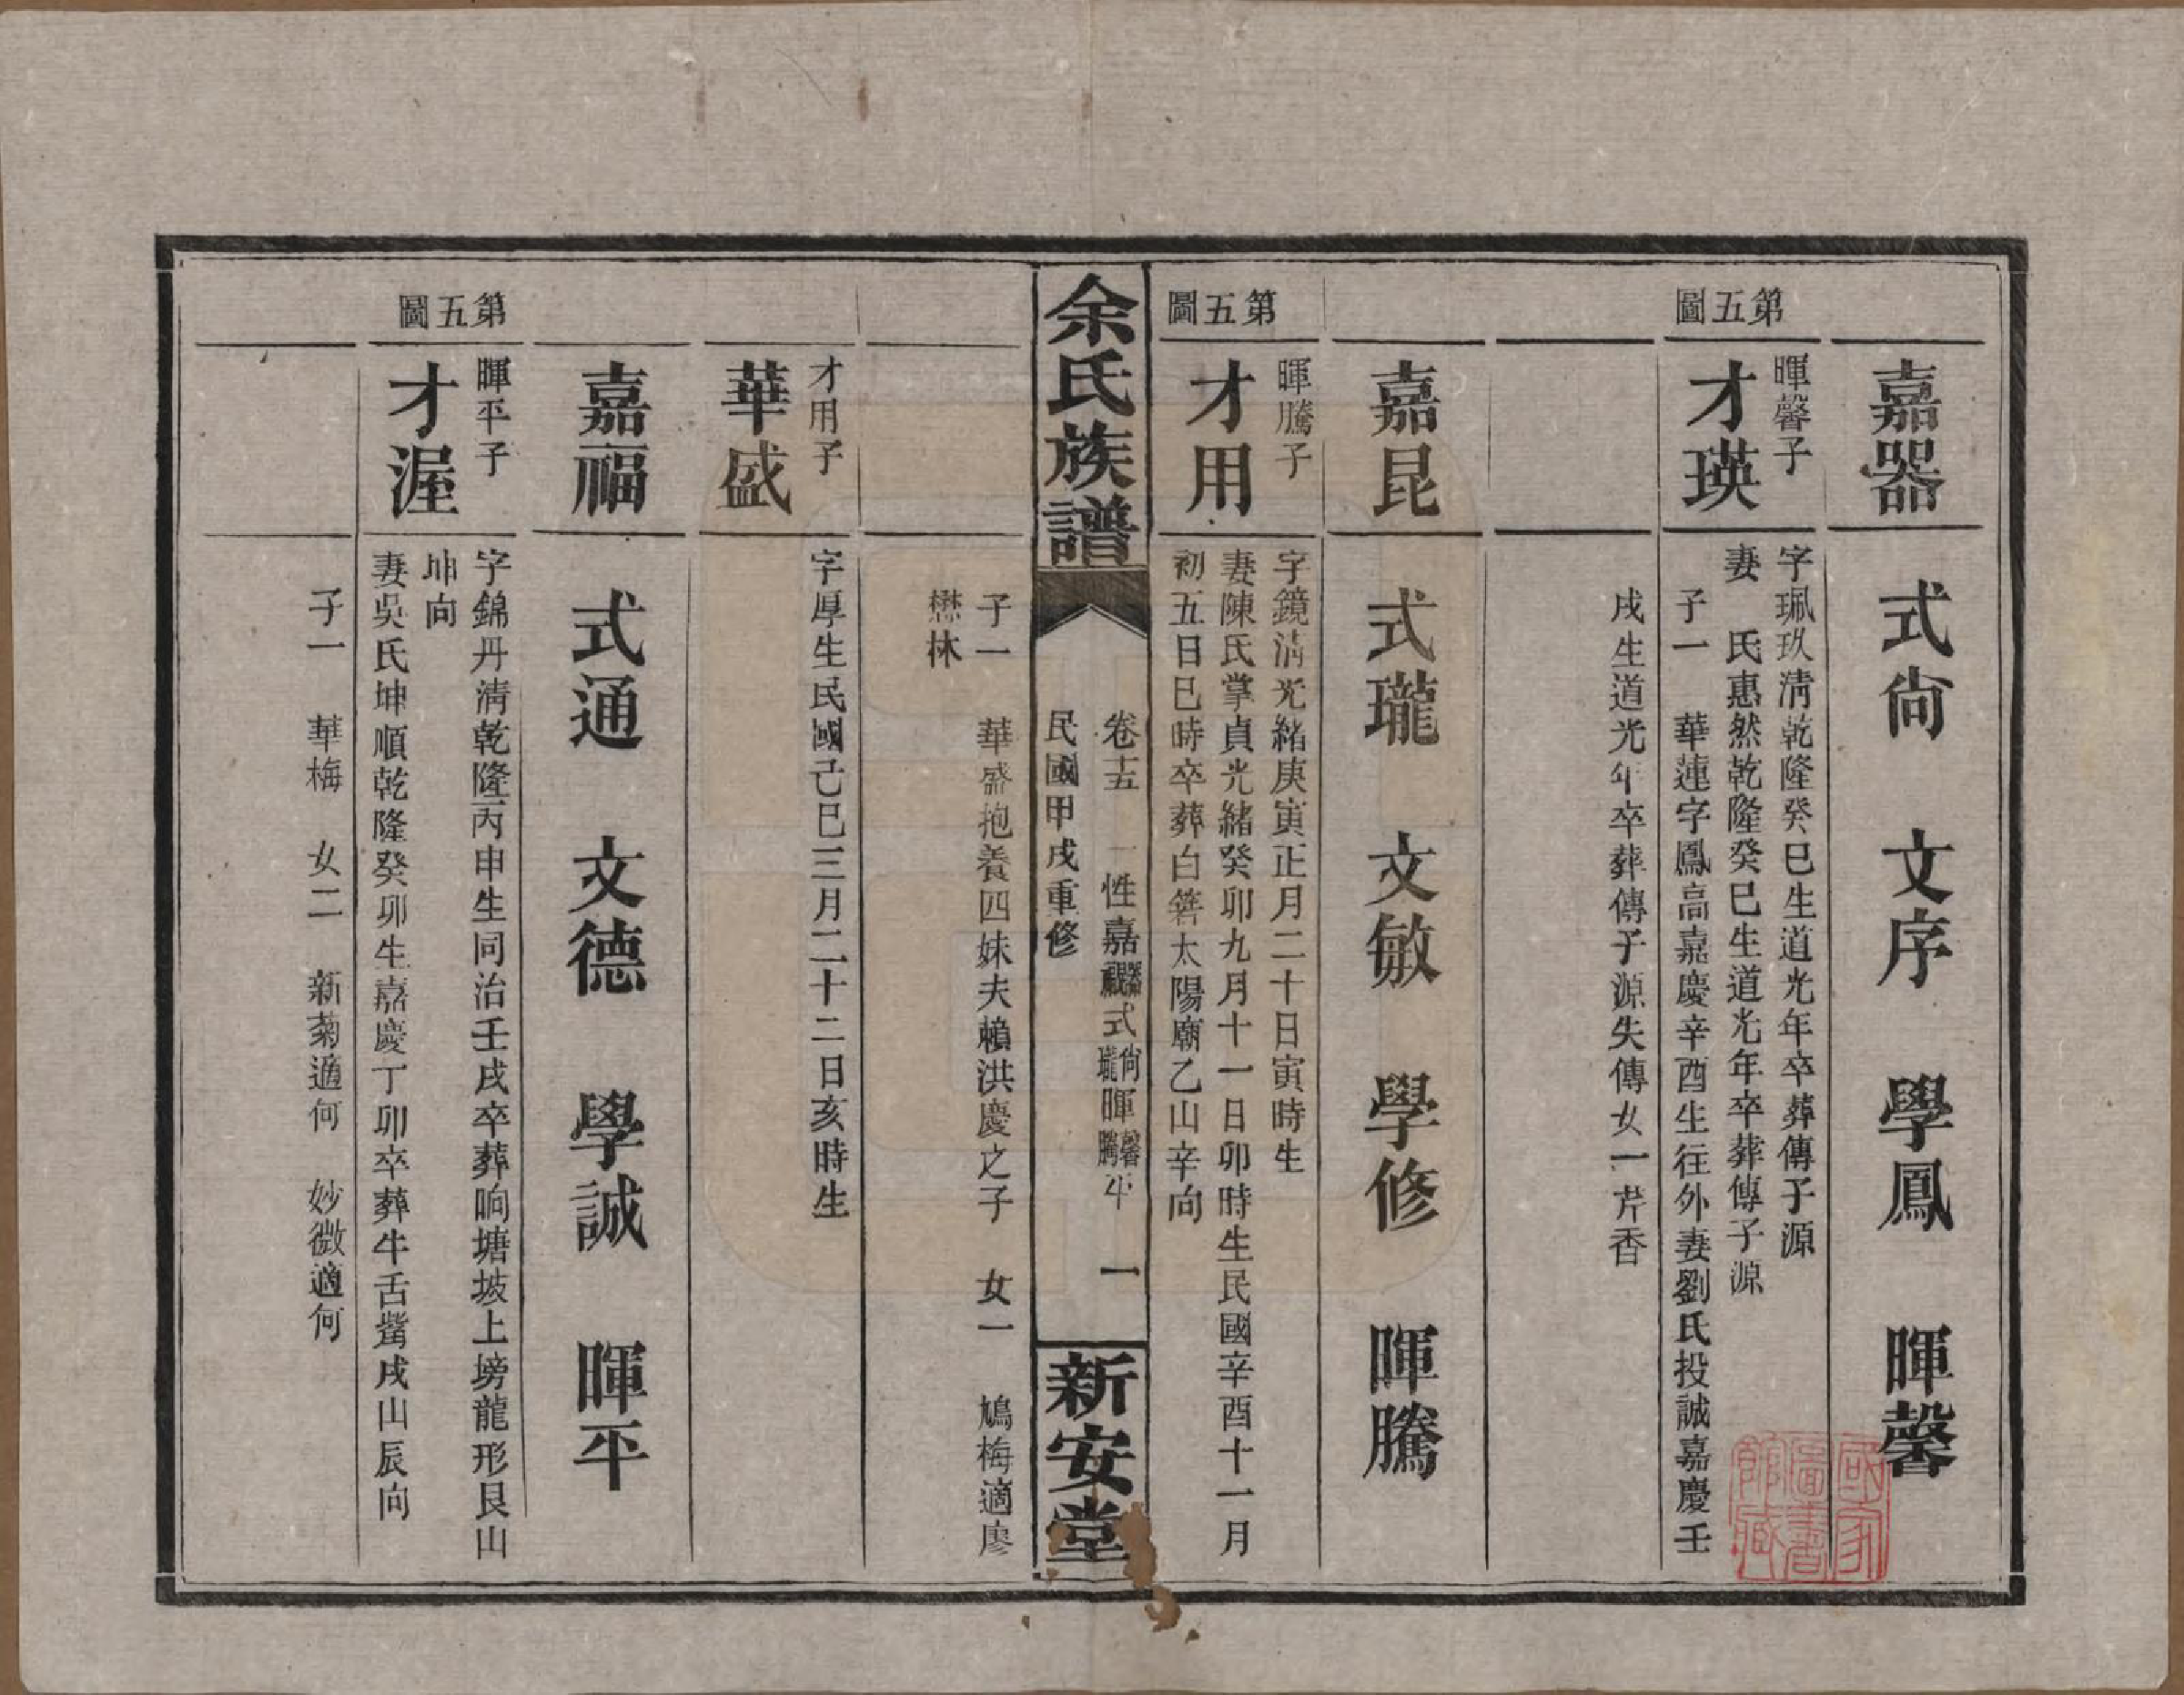 嘉器 式尙 文序 學鳳 暉馨
第五圖
暉馨子
才瑛
字珮玖淸乾隆癸巳生道光年卒葬傳子源
妻 氏惠然乾隆癸巳生道光年卒葬傳子源
子一 華蓮字鳳高嘉慶辛酉生往外妻劉氏投誠嘉慶壬
戌生道光年卒葬傳子源失傳女一芹香
嘉昆 式瓏 文敏 學修 暉騰
第五圖
暉騰子
才用
字鏡淸光緒庚寅正月二十日寅時生
妻陳氏掌貞光緒癸卯九月十一日卯時生民國辛酉十一月
初五日巳時卒葬白箬太陽廟乙山辛向
余氏族譜
卷十五 一性嘉器昆福式尙瓏暉馨騰平 一
民國甲戌重修
新安堂
子一 華盛抱養四妹夫賴洪慶之子 女一 鳩梅適廖
懋林
才用子
華盛
字厚生民國己巳三月二十二日亥時生
嘉福 式通 文德 學誠 暉平
第五圖
暉平子
才渥
字錦丹淸乾隆丙申生同治壬戌卒葬晌塘坡上塝龍形艮山
坤向
妻吳氏坤順乾隆癸卯生嘉慶丁卯卒葬牛舌嵤戌山辰向
子一 華梅 女二 新菊適何 妙微適何
國家圖書館藏